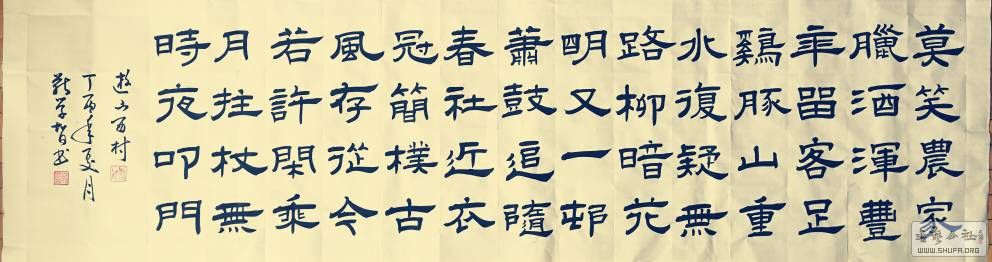 莫笑農家
臘酒渾豐
年留客足
鷄豚山重
水復疑無
路柳暗花
明又一邨
蕭鼓追隨
春社近衣
冠簡樸古
風存從今
若許閑乘
月拄杖無
時夜叩門
遊山西村
丁酉年夏月
WWW.SHUFA.ORG